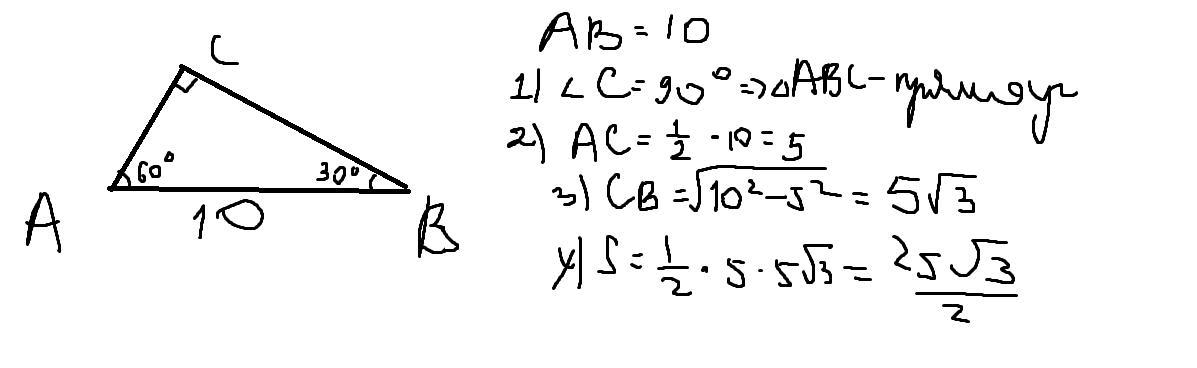 C
60°
30°
A
10
B
AB = 10
1) ∠C = 90° => △ABC - прямоуг
2) AC = 1/2 · 10 = 5
3) CB = √(10² - 5²) = 5√3
4) S = 1/2 · 5 · 5√3 = 25√3/2